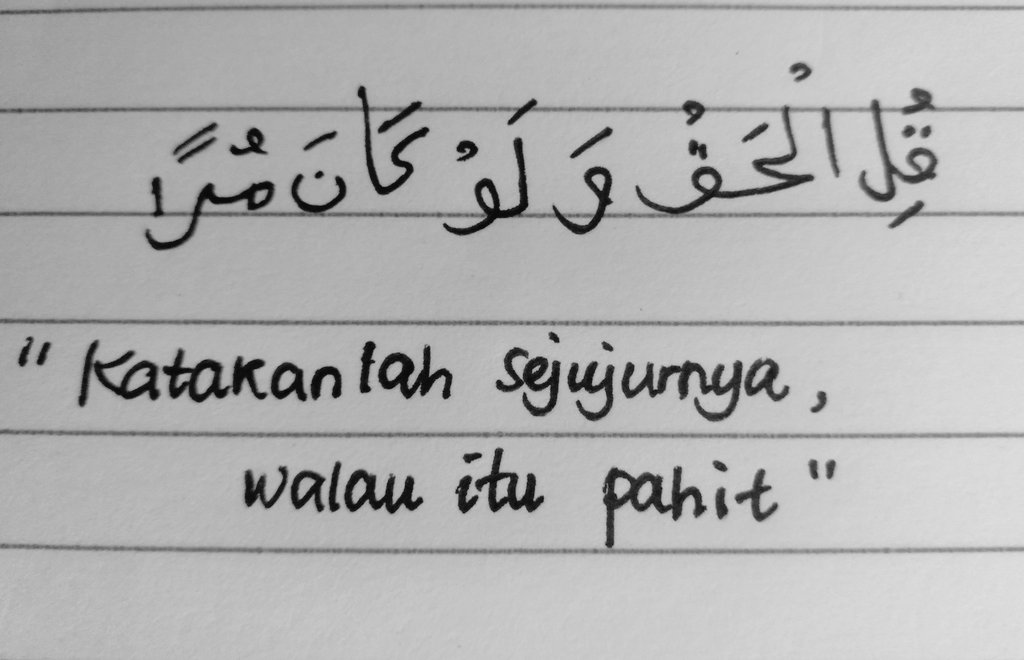 قُلِ الْحَقْ وَ لَوْ كَانَ مُرًا
"Katakanlah sejujurnya,
walau itu pahit"